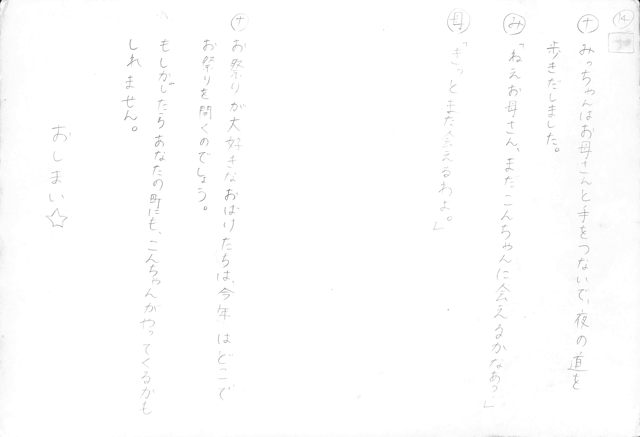 14
ナ みっちゃんはお母さんと手をつないで、夜の道を
歩きだしました。
み「ねえお母さん、またこんちゃんに会えるかなあ?」
母「きっとまた会えるわよ。」
ナ お祭りが大好きなおばけたちは、今年はどこで
お祭りを開くのでしょう。
もしかしたらあなたの町にも、こんちゃんがやってくるかも
しれません。
おしまい☆